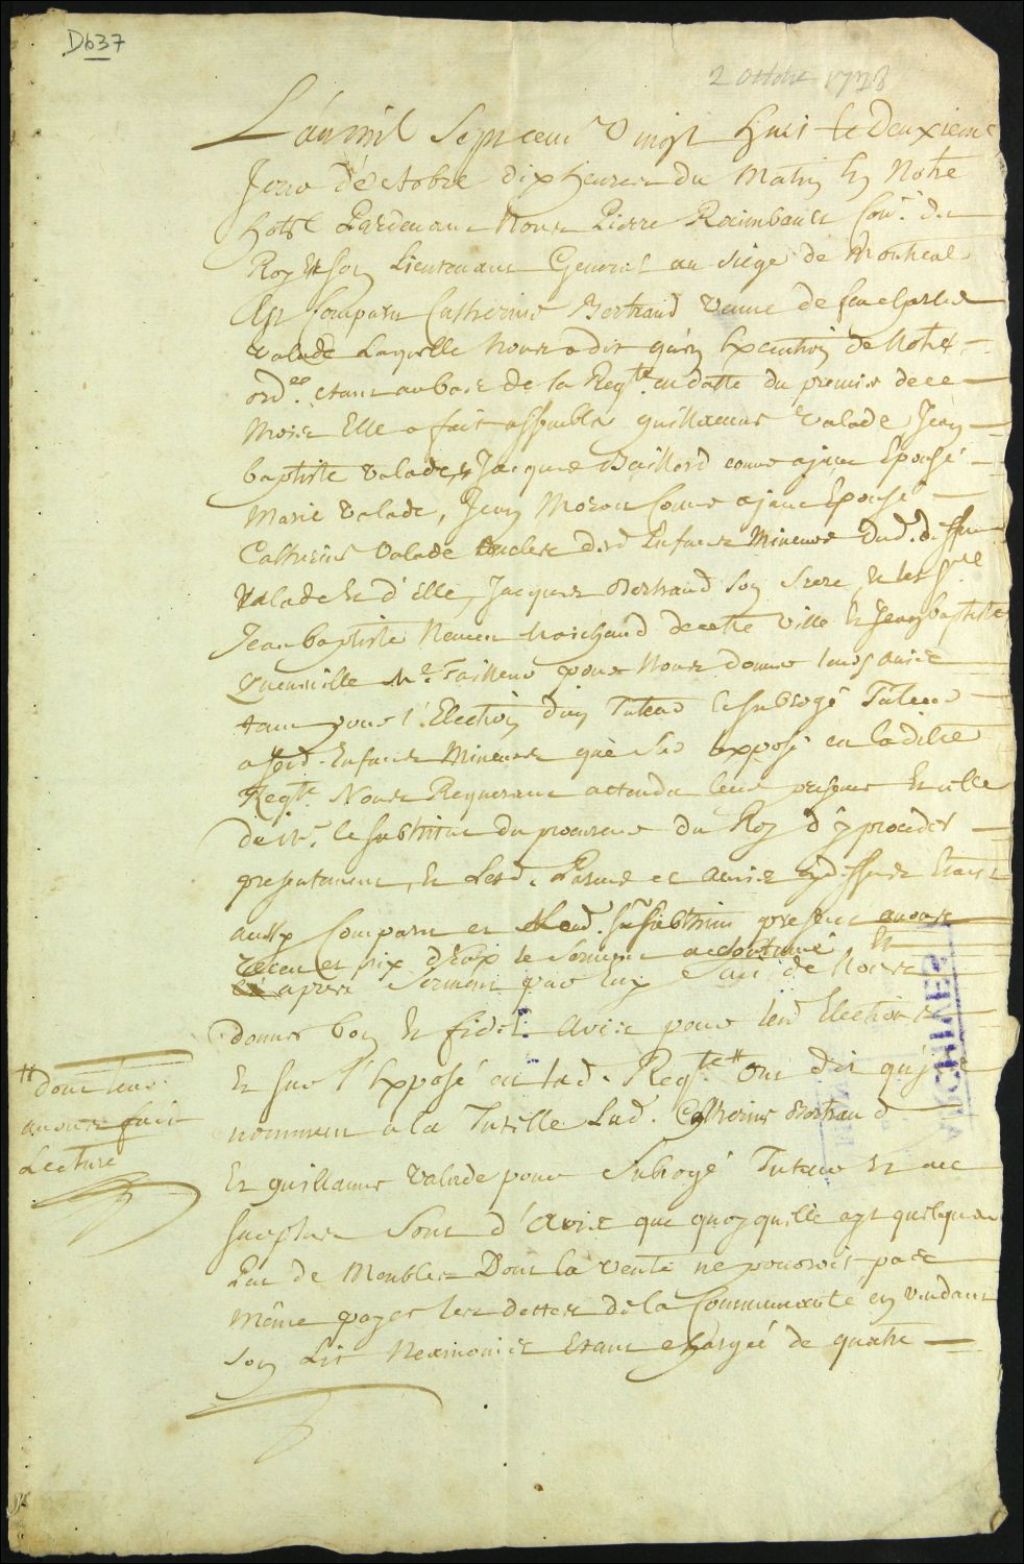 Db37
2 octobre 1728
L'an mil Sept cent Vingt huit le Deuxieme
Jour d'octobre dix heures du Matin En Notre
hotel Pardevant Nous Pierre Raimbault Con.er du
Roy Et son Lieutenant General au siege de Montreal
Est Comparu Catherine Bertrand veuve de feu Charles
Valade Laquelle Nous a dit qu'en Execution de Notre
ord.ce etant au bas de la Reqte en datte du premier de ce
Mois Elle a fait assembler guillaume Valade Jean
baptiste Valade, Jacques Baillard comme ajant Epousé
Marie Valade, Jean Moran Comme ajant Epousé
Catherine Valade oncles desd Enfans Mineurs dud. deffunt
Valade Et d'elle, Jacques Bertrand son frere, Et les Srs
Jean baptiste Marchand de cette Ville Et Jean baptiste
Me Tailleur pour Nous donner leurs avis
tant pour l'Election d'un Tuteur Et subrogé Tuteur
ausd. Enfans Mineurs que sur Exposé en la dite
Reqte Nous Requerant attendu leur presence Et celle
de Mr. le substitut du procureur du Roy d'y proceder
presentement, Et Lesd. Parens et amis cy dessus Etant
aussy Comparu et led. Sr substitut present avons
receu et pris d'Eux le serment accoutumé, Et
apres serment par Eux fait de Nous
donner bon Et fidel avis pour lesd Elections
Et sur l'Exposé en lad. Reqte # ont dit qu'ils
nomment a la Tutelle Lad. Catherine Bertrand
Et guillaume Valade pour Subrogé Tuteur Et au
surplus Sont d'avis que quoyqu'elle ayt quelque
peu de Meubles Dont la vente ne pouroit pas
même payer les dettes de la Communauté en vendant
son Lit Neanmoins Etant chargée de quatre
# dont leur
avons fait
Lecture
ARCHIVES